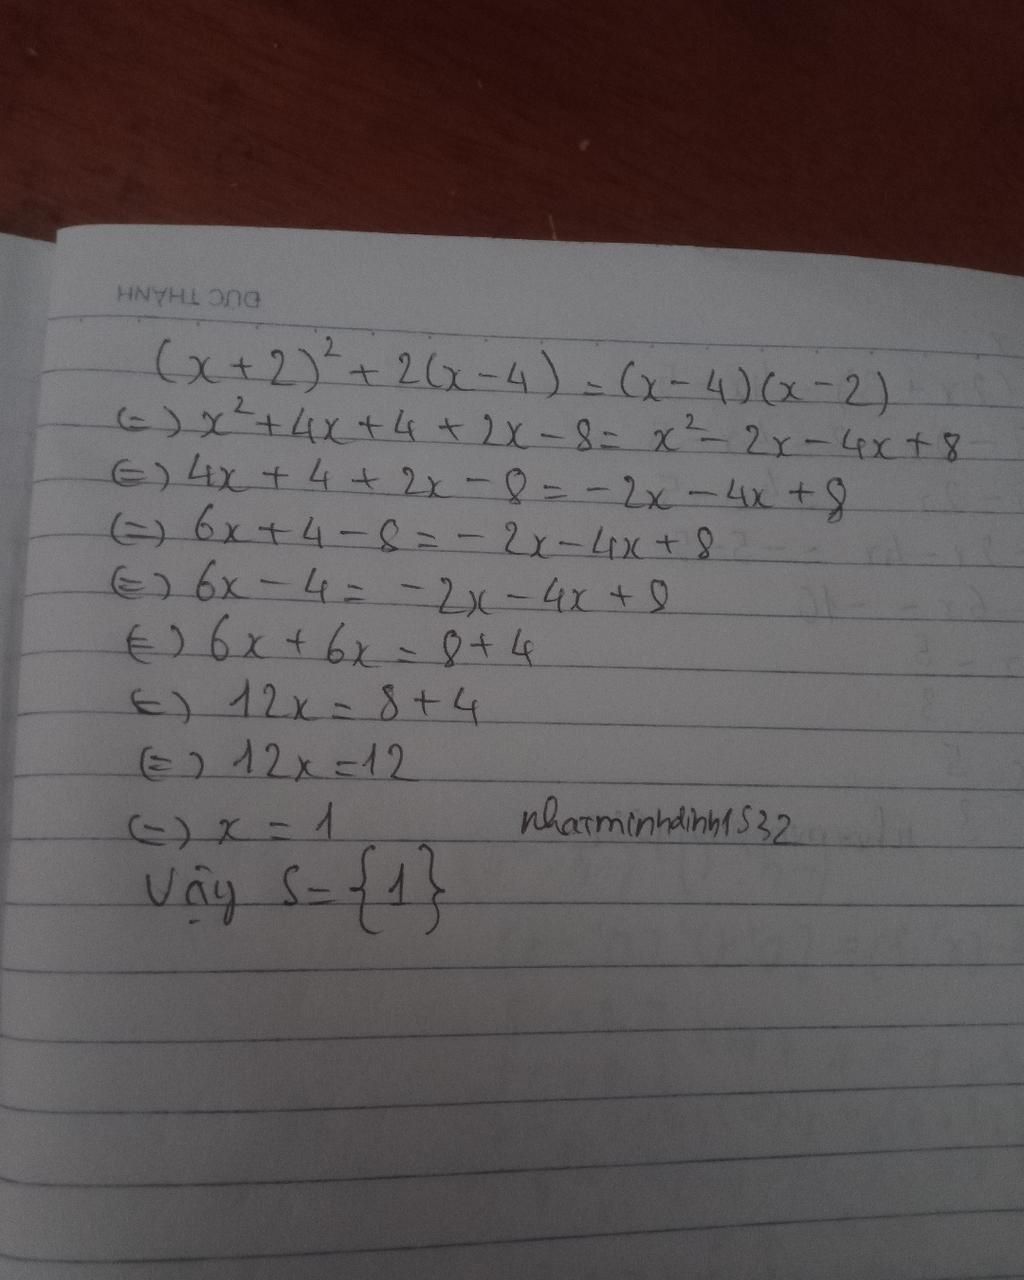 ĐỨC THÀNH
(x+2)² + 2(x-4) = (x-4)(x-2)
(=) x² + 4x + 4 + 2x - 8 = x² - 2x - 4x + 8
(=) 4x + 4 + 2x - 8 = -2x - 4x + 8
(=) 6x + 4 - 8 = -2x - 4x + 8
(=) 6x - 4 = -2x - 4x + 8
(=) 6x + 6x = 8 + 4
(=) 12x = 8 + 4
(=) 12x = 12
(=) x = 1 nhatminhdinh1532
Vậy S = {1}